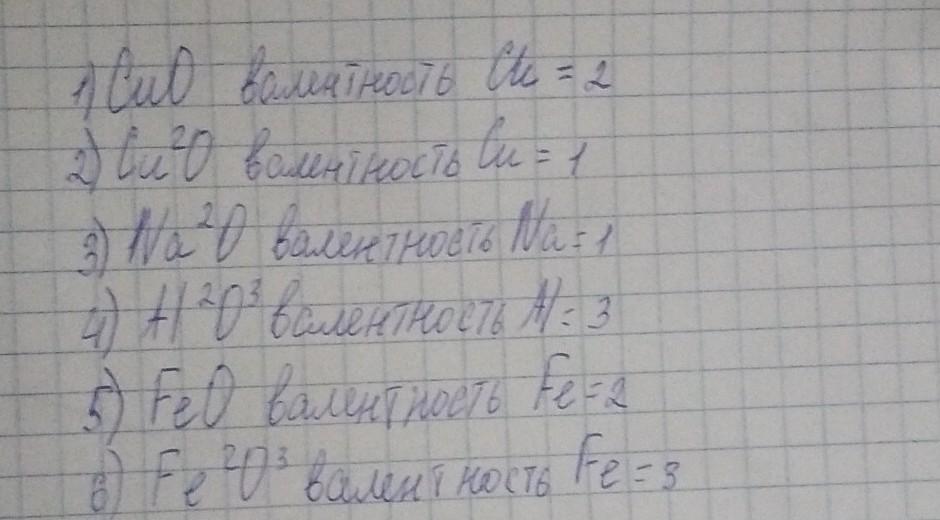 1) CuO валентность Cu = 2
2) Cu²O валентность Cu = 1
3) Na²O валентность Na = 1
4) Al²O³ валентность Al = 3
5) FeO валентность Fe = 2
6) Fe²O³ валентность Fe = 3